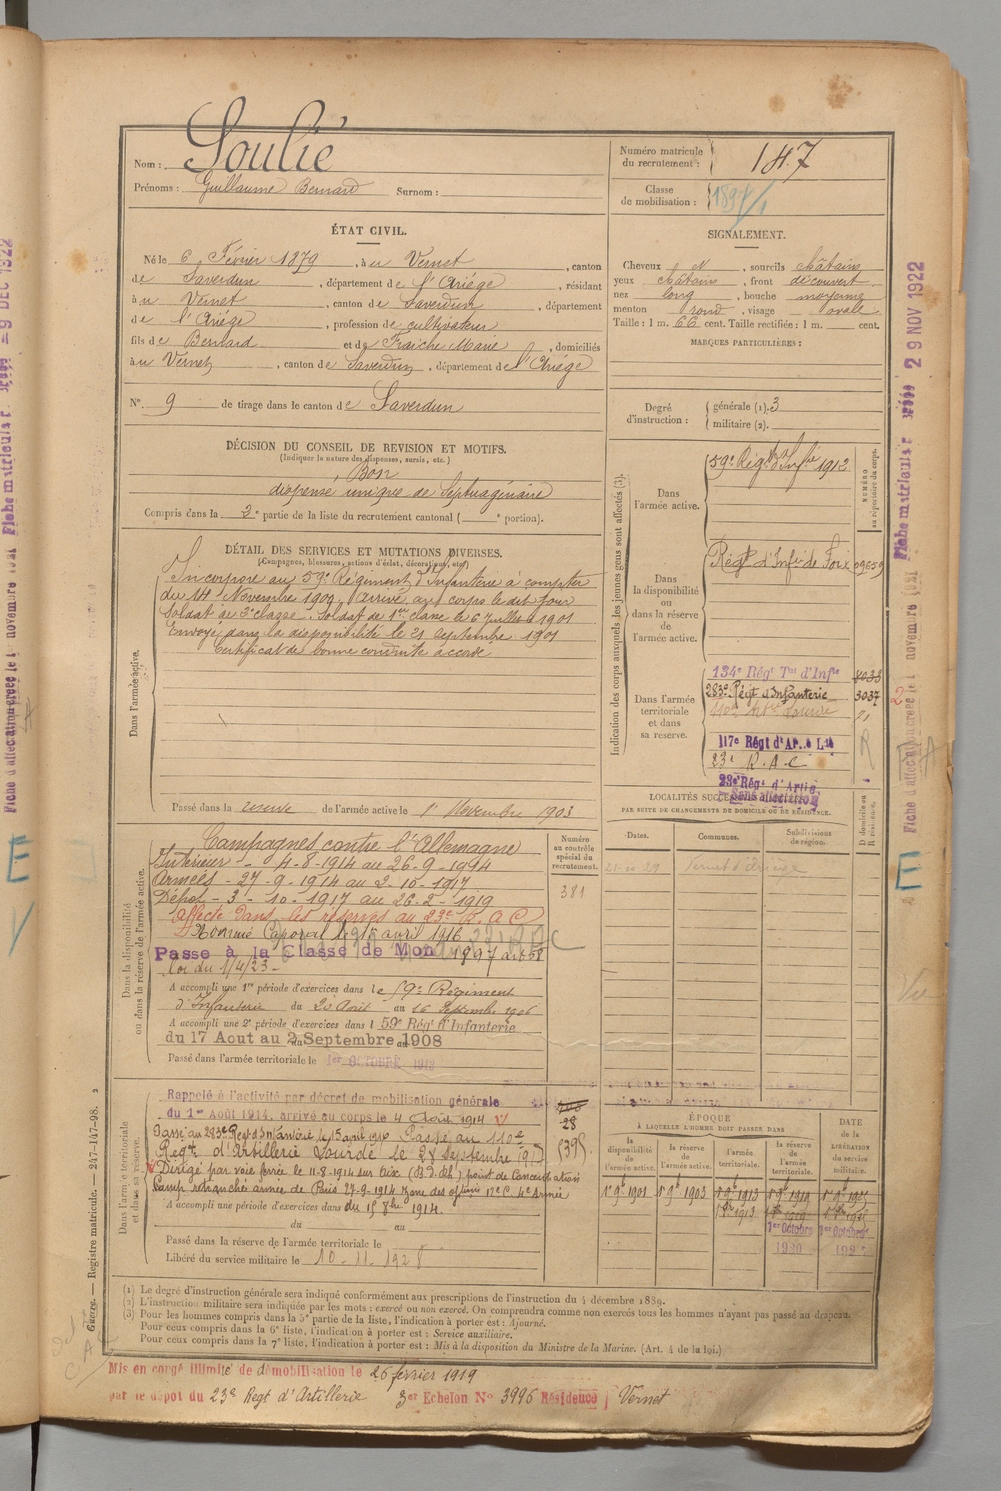 Nom : Soulié
Prénoms : Guillaume Bernard Surnom :
Numéro matricule du recrutement : 147
Classe de mobilisation : 1897
ÉTAT CIVIL.
Né le 6 Février 1879, à u Vernet, canton
de Saverdun, département de l'Ariége, résidant
à u Vernet, canton de Saverdun, département
de l'Ariége, profession de cultivateur
fils de Bernard et de Fraiche Marie, domiciliés
à u Vernet, canton de Saverdun, département de l'Ariége
N° 9 de tirage dans le canton de Saverdun
SIGNALEMENT.
Cheveux N, sourcils châtains
yeux châtains, front découvert
nez long, bouche moyenne
menton rond, visage ovale
Taille : 1 m. 66 cent. Taille rectifiée : 1 m. cent.
MARQUES PARTICULIÈRES :
Degré d'instruction : générale (1). 3
militaire (2).
DÉCISION DU CONSEIL DE REVISION ET MOTIFS.
(Indiquer la nature des dispenses, sursis, etc.)
Bon
dispensé, unique de Septuagénaire
Compris dans la 2e partie de la liste du recrutement cantonal ( e portion).
DÉTAIL DES SERVICES ET MUTATIONS DIVERSES.
(Campagnes, blessures, actions d'éclat, décorations, etc.)
Dans l'armée active.
Incorporé au 59e Régiment d'Infanterie à compter
du 14 Novembre 1900, arrivé au corps le dit jour
Soldat de 2e classe. Soldat de 1ère classe le 6 Juillet 1901
Envoyé dans la disponibilité le 21 Septembre 1901
Certificat de bonne conduite accordé
Passé dans la réserve de l'armée active le 1r Novembre 1903
Indication des corps auxquels les jeunes gens sont affectés (3).
NUMÉRO au répertoire du corps.
Dans l'armée active.
59e Régt d'Infrie 1912
Dans la disponibilité ou dans la réserve de l'armée active.
Régt d'Infie de Foix 09659
Dans l'armée territoriale et dans sa réserve.
134e Régt Tal d'Infie
283e Régt d'Infanterie 3037
110e Artie Lourde
117e Régt d'Ar..e Lde
23e R.A.C
23e Régt d'Artie
Sans affectation
LOCALITÉS SUCCESSIVES
PAR SUITE DE CHANGEMENTS DE DOMICILE OU DE RÉSIDENCE.
Dates. Communes. Subdivisions de région. D domicile ou R résidence.
Vernet d'Ariège
Dans la disponibilité ou dans la réserve de l'armée active.
Numéro au contrôle spécial du recrutement.
381
Campagnes contre l'Allemagne
Intérieur - 4-8-1914 au 26-9-1994
Armées - 27-9-1914 au 2-10-1917
Dépôt - 3-10-1917 au 26-2-1919
Affecté dans les réserves au 23e R.A.C
Nommé Caporal le 15 avril 1916
Passe à la Classe de Mon 1897
loi du 1/4/23
A accompli une 1re période d'exercices dans le 59e Régiment
d'Infanterie du 20 Août au 16 Septembre 1906
A accompli une 2e période d'exercices dans l 59e Régt d'Infanterie
du 17 Aout au 2 Septembre 1908
Passé dans l'armée territoriale le 1er OCTOBRE 1913
Dans l'armée territoriale et dans sa réserve.
Rappelé à l'activité par décret de mobilisation générale
du 1er Août 1914, arrivé au corps le 4 Août 1914
28
Passé au 283e Régt d'Infanterie le 15 avril 1916 Passé au 110e
Régt d'Artillerie Lourde le 28 Septembre 1917
Dirigé par voie ferrée le 11-8-1914 sur Aix (B.d.Rh) point de concentration
Camp retranché armée de Paris 27-9-1914 zone des opérons 17e C. 4e Armée
A accompli une période d'exercices dans du 15 8bre 1914.
du au
Passé dans la réserve de l'armée territoriale le
Libéré du service militaire le 10-11-1928
ÉPOQUE
À LAQUELLE L'HOMME DOIT PASSER DANS
la disponibilité de l'armée active.
la réserve de l'armée active.
l'armée territoriale.
la réserve de l'armée territoriale.
DATE de la LIBÉRATION du service militaire.
1r 9bre 1901 1r 9bre 1903 1r 9bre 1913 1r 9bre 1919
1er Octobre 1920
(1) Le degré d'instruction générale sera indiqué conformément aux prescriptions de l'instruction du 4 décembre 1889.
(2) L'instruction militaire sera indiquée par les mots : exercé ou non exercé. On comprendra comme non exercés tous les hommes n'ayant pas passé au drapeau.
(3) Pour les hommes compris dans la 5e partie de la liste, l'indication à porter est : Ajourné.
Pour ceux compris dans la 6e liste, l'indication à porter est : Service auxiliaire.
Pour ceux compris dans la 7e liste, l'indication à porter est : Mis à la disposition du Ministre de la Marine. (Art. 4 de la loi.)
Mis en congé illimité de démobilisation le 26 février 1919
par le dépot du 23e Régt d'Artillerie 3er Echelon N° 3996 Résidence Vernet
Guerre. — Registre matricule. — 247-147-98. 2
Fiche matricule
29 NOV 1922
Fiche d'affectation créée le 1 novembre
E
Fiche matricule
9 DEC 1922
Fiche d'affectation créée le 1 novembre
E
V